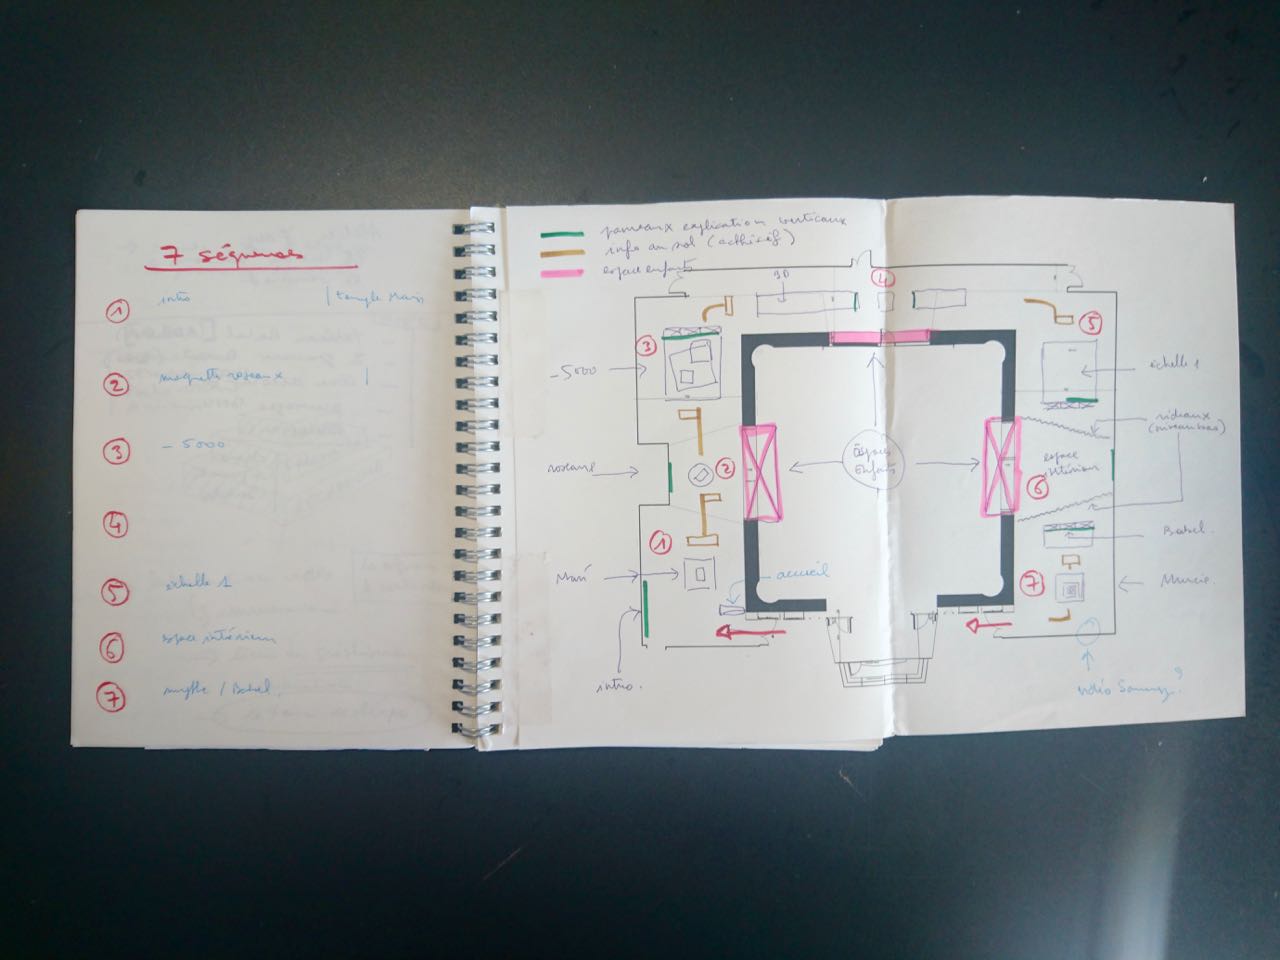 7 séquences
1 intro | temple Mari
2 maquette roseaux |
3 - 5000
4
5 échelle 1
6 espace intérieur
7 / Babel.
panneaux explication verticaux
info au sol (adhésif)
espace enfants
3D
4
3
5
- 5000
échelle 1
rideaux
(niveau bas)
roseaux
2
Espaces
Enfants
espace
intérieur
6
1
Babel.
Mari
accueil
7
intro.
vidéo